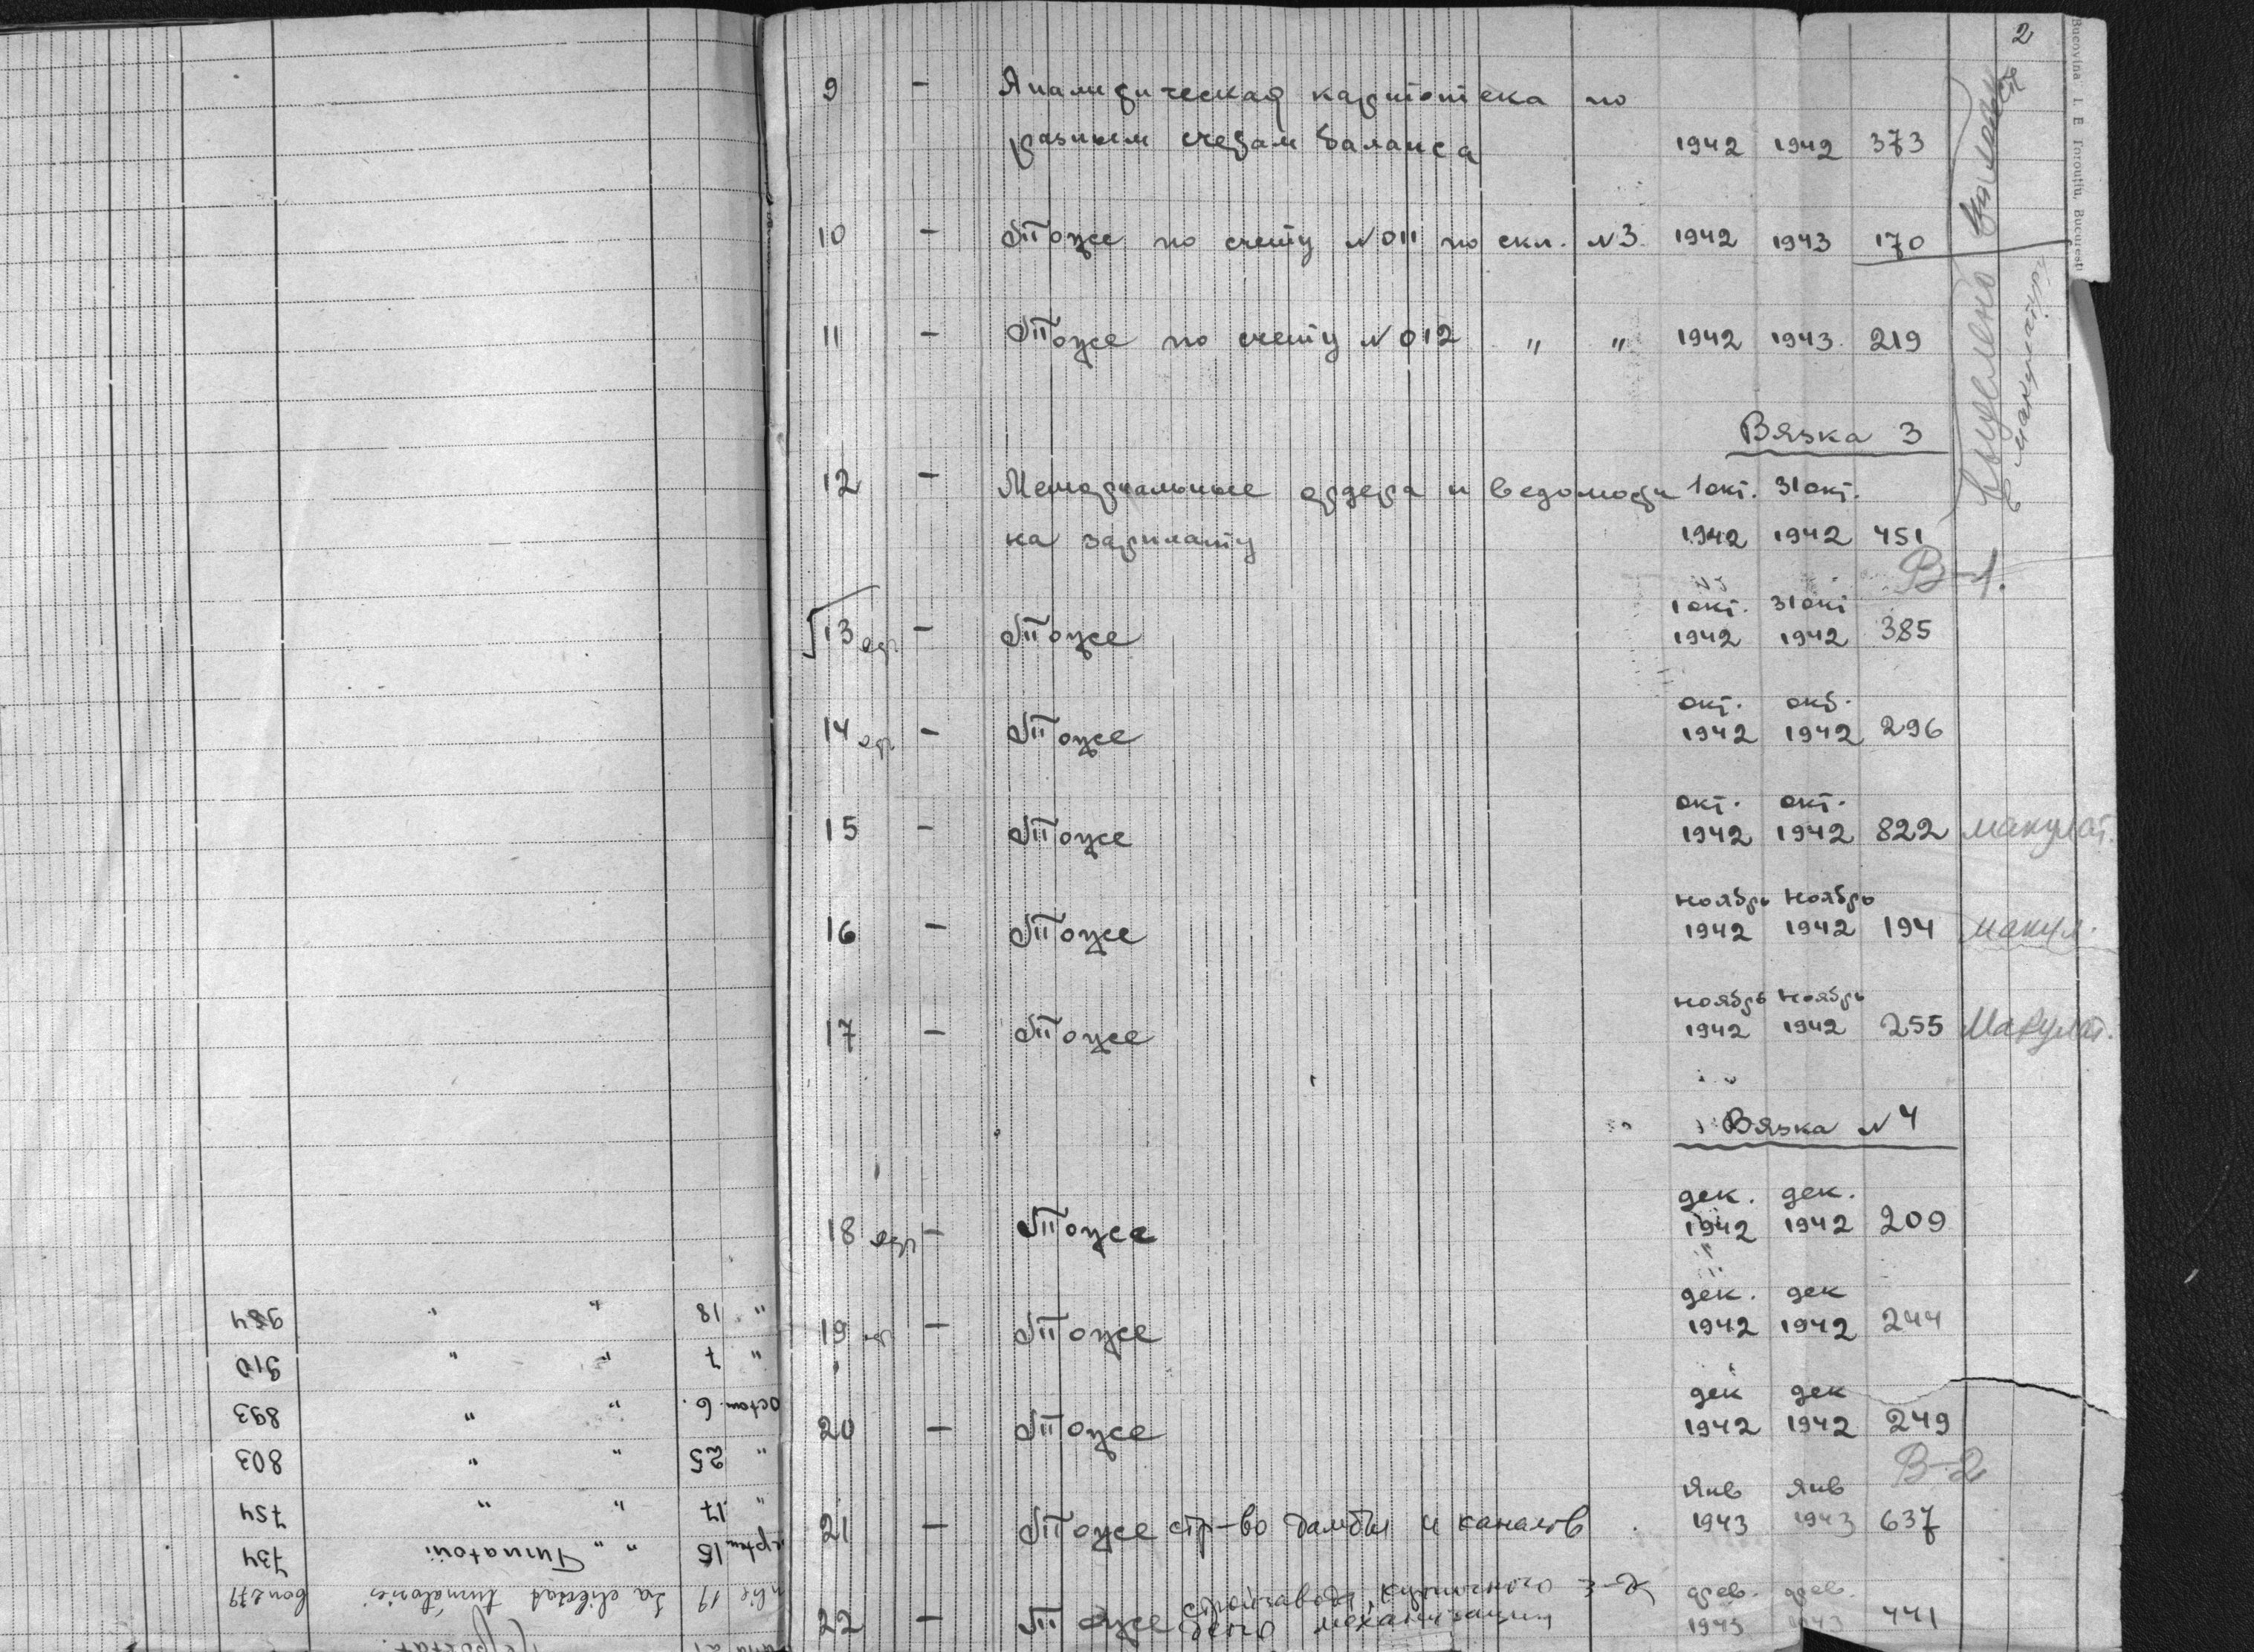 2
9 - Аналитическая картотека по
разным счетам баланса 1942 1942 373
10 - Тоже по счету №011 по скл. №3 1942 1943 170
11 - Тоже по счету №012 " " 1942 1943 219
Вязка 3
12 - Мемориальные ордера и ведомости 1 окт. 31 окт.
на зарплату 1942 1942 451
В-1.
1 окт. 31 окт
13 - Тоже 1942 1942 385
окт. окт.
14 - Тоже 1942 1942 296
окт. окт.
15 - Тоже 1942 1942 822 макулат.
ноябрь ноябрь
16 - Тоже 1942 1942 194 макул.
ноябрь ноябрь
17 - Тоже 1942 1942 255 Макулат.
Вязка №4
дек. дек.
18 - Тоже 1942 1942 209
дек. дек
19 - Тоже 1942 1942 244
дек дек
20 - Тоже 1942 1942 249
В-2
янв янв
21 - Тоже стр-во дамбы и каналов 1943 1943 637
стройзавода, кузнечного з-да фев. фев.
22 - Тоже механизации 1943 1943 441
Выделено
в макулатуру
Bucovina I. E. Torouțiu, București
bon 279 La elibrat 19
734 Turnatori " " 15
754 " " 17 "
803 " " 25 "
893 " " 6. Octom.
910 " " 7 "
984 " " 18 "